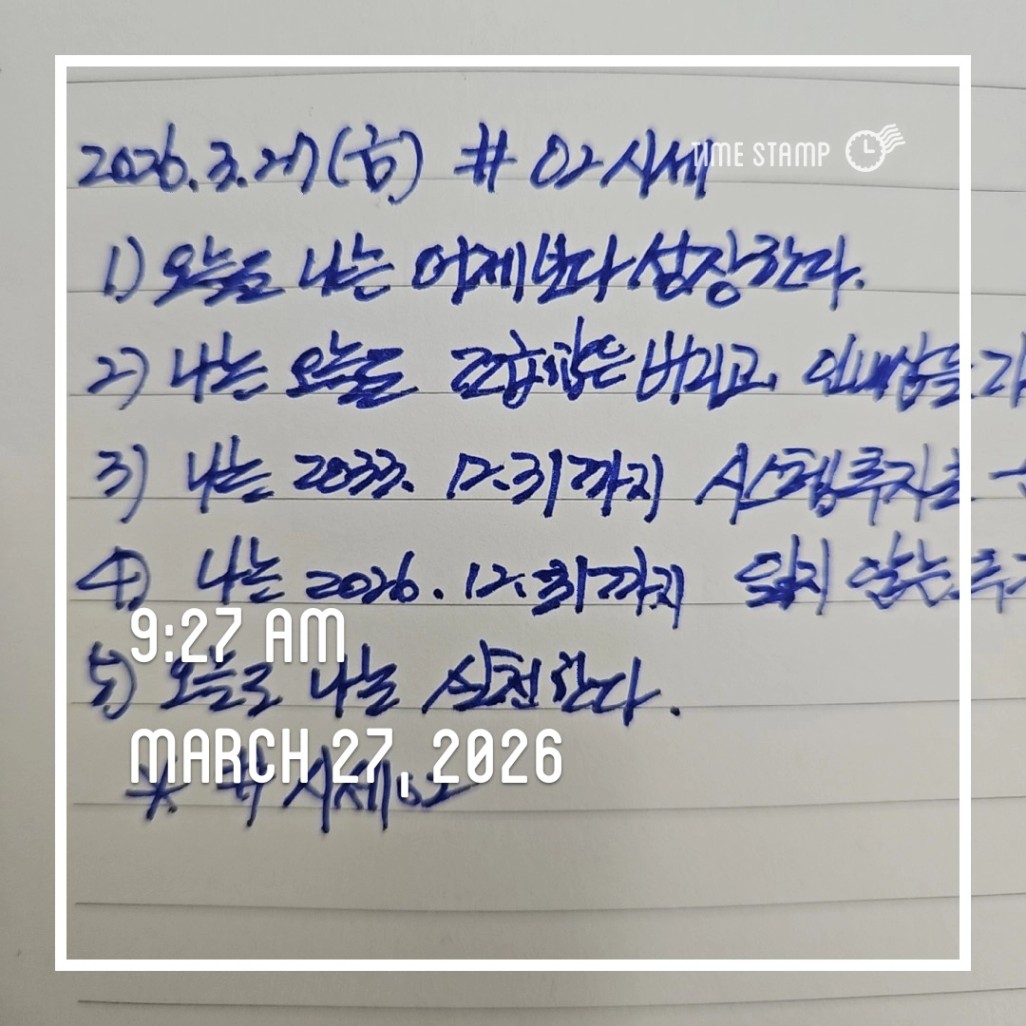 2026.3.27(금) # 02시세
TIME STAMP
1) 오늘도 나는 어제보다 성장한다.
2) 나는 오늘도 조급함은 버리고, 인내심을
3) 나는 2033. 12.31까지 시스템투자로
4) 나는 2026. 12.31까지 잃지 않는
9:27 AM
5) 오늘도 나는 실천한다.
MARCH 27, 2026
※ # 시세02